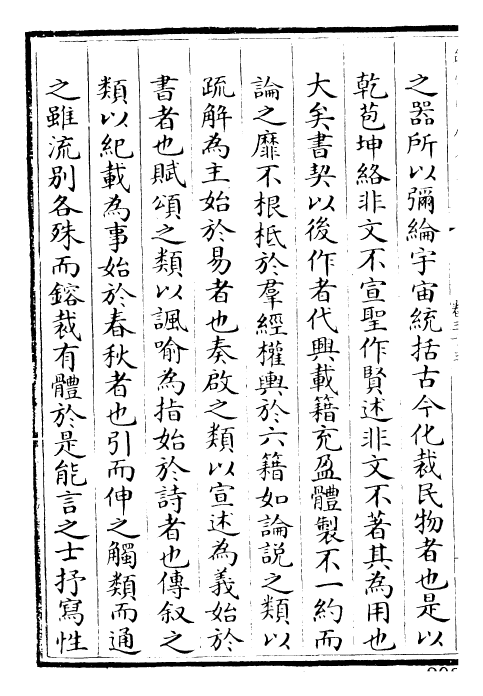 之器所以彌綸宇宙統括古今化裁民物者也是以
乾苞坤絡非文不宣聖作賢述非文不著其為用也
大矣書契以後作者代興載籍充盈體製不一約而
論之靡不根柢於羣經權輿於六籍如論説之類以
疏解為主始於易者也奏啟之類以宣述為義始於
書者也賦頌之類以諷喻為指始於詩者也傳叙之
類以紀載為事始於春秋者也引而伸之觸類而通
之雖流别各殊而鎔裁有體於是能言之士抒寫性